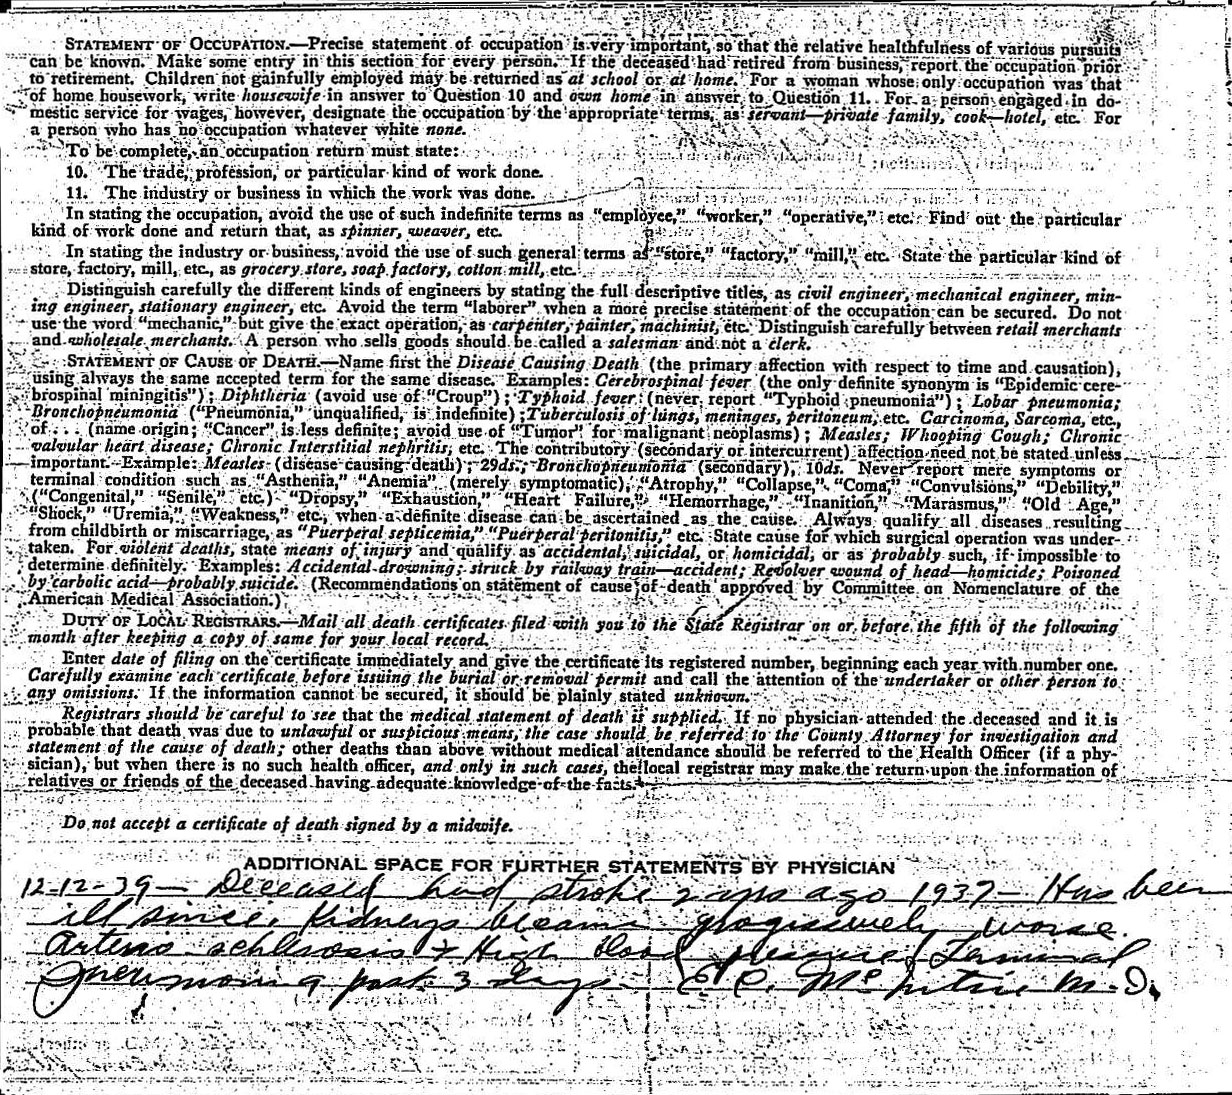 STATEMENT OF OCCUPATION.—Precise statement of occupation is very important, so that the relative healthfulness of various pursuits
can be known. Make some entry in this section for every person. If the deceased had retired from business, report the occupation prior
to retirement. Children not gainfully employed may be returned as at school or at home. For a woman whose only occupation was that
of home housework, write housewife in answer to Question 10 and own home in answer to Question 11. For a person engaged in do-
mestic service for wages, however, designate the occupation by the appropriate terms, as servant—private family, cook—hotel, etc. For
a person who has no occupation whatever white none.
To be complete, an occupation return must state:
10. The trade, profession, or particular kind of work done.
11. The industry or business in which the work was done.
In stating the occupation, avoid the use of such indefinite terms as "employee," "worker," "operative," etc. Find out the particular
kind of work done and return that, as spinner, weaver, etc.
In stating the industry or business, avoid the use of such general terms as "store," "factory," "mill," etc. State the particular kind of
store, factory, mill, etc., as grocery store, soap factory, cotton mill, etc.
Distinguish carefully the different kinds of engineers by stating the full descriptive titles, as civil engineer, mechanical engineer, min-
ing engineer, stationary engineer, etc. Avoid the term "laborer" when a more precise statement of the occupation can be secured. Do not
use the word "mechanic," but give the exact operation, as carpenter, painter, machinist, etc. Distinguish carefully between retail merchants
and wholesale merchants. A person who sells goods should be called a salesman and not a clerk.
STATEMENT OF CAUSE OF DEATH.—Name first the Disease Causing Death (the primary affection with respect to time and causation),
using always the same accepted term for the same disease. Examples: Cerebrospinal fever (the only definite synonym is "Epidemic cere-
brospinal miningitis"); Diphtheria (avoid use of "Croup"); Typhoid fever (never report "Typhoid pneumonia"); Lobar pneumonia;
Bronchopneumonia ("Pneumonia," unqualified, is indefinite); Tuberculosis of lungs, meninges, peritoneum, etc. Carcinoma, Sarcoma, etc.,
of . . . (name origin; "Cancer" is less definite; avoid use of "Tumor" for malignant neoplasms); Measles; Whooping Cough; Chronic
valvular heart disease; Chronic Interstitial nephritis, etc. The contributory (secondary or intercurrent) affection need not be stated unless
important. Example: Measles (disease causing death), 29ds.; Bronchopneumonia (secondary), 10ds. Never report mere symptoms or
terminal condition such as "Asthenia," "Anemia" (merely symptomatic), "Atrophy," "Collapse," "Coma," "Convulsions," "Debility,"
("Congenital," "Senile," etc.) "Dropsy," "Exhaustion," "Heart Failure," "Hemorrhage," "Inanition," "Marasmus," "Old Age,"
"Shock," "Uremia," "Weakness," etc., when a definite disease can be ascertained as the cause. Always qualify all diseases resulting
from childbirth or miscarriage, as "Puerperal septicemia," "Puerperal peritonitis," etc. State cause for which surgical operation was under-
taken. For violent deaths, state means of injury and qualify as accidental, suicidal, or homicidal, or as probably such, if impossible to
determine definitely. Examples: Accidental drowning; struck by railway train—accident; Revolver wound of head—homicide; Poisoned
by carbolic acid—probably suicide. (Recommendations on statement of cause of death approved by Committee on Nomenclature of the
American Medical Association.)
DUTY OF LOCAL REGISTRARS.—Mail all death certificates filed with you to the State Registrar on or before the fifth of the following
month after keeping a copy of same for your local record.
Enter date of filing on the certificate immediately and give the certificate its registered number, beginning each year with number one.
Carefully examine each certificate before issuing the burial or removal permit and call the attention of the undertaker or other person to
any omissions. If the information cannot be secured, it should be plainly stated unknown.
Registrars should be careful to see that the medical statement of death is supplied. If no physician attended the deceased and it is
probable that death was due to unlawful or suspicious means, the case should be referred to the County Attorney for investigation and
statement of the cause of death; other deaths than above without medical attendance should be referred to the Health Officer (if a phy-
sician), but when there is no such health officer, and only in such cases, the local registrar may make the return upon the information of
relatives or friends of the deceased having adequate knowledge of the facts.
Do not accept a certificate of death signed by a midwife.
ADDITIONAL SPACE FOR FURTHER STATEMENTS BY PHYSICIAN
12-12-39— Deceased had stroke 2 yrs ago 1937— Has been
ill since. Kidneys became progressively worse.
Arterio schlerosis + High blood pressure Terminal
pneumonia past 3 days— E. C. McIntire M.D.